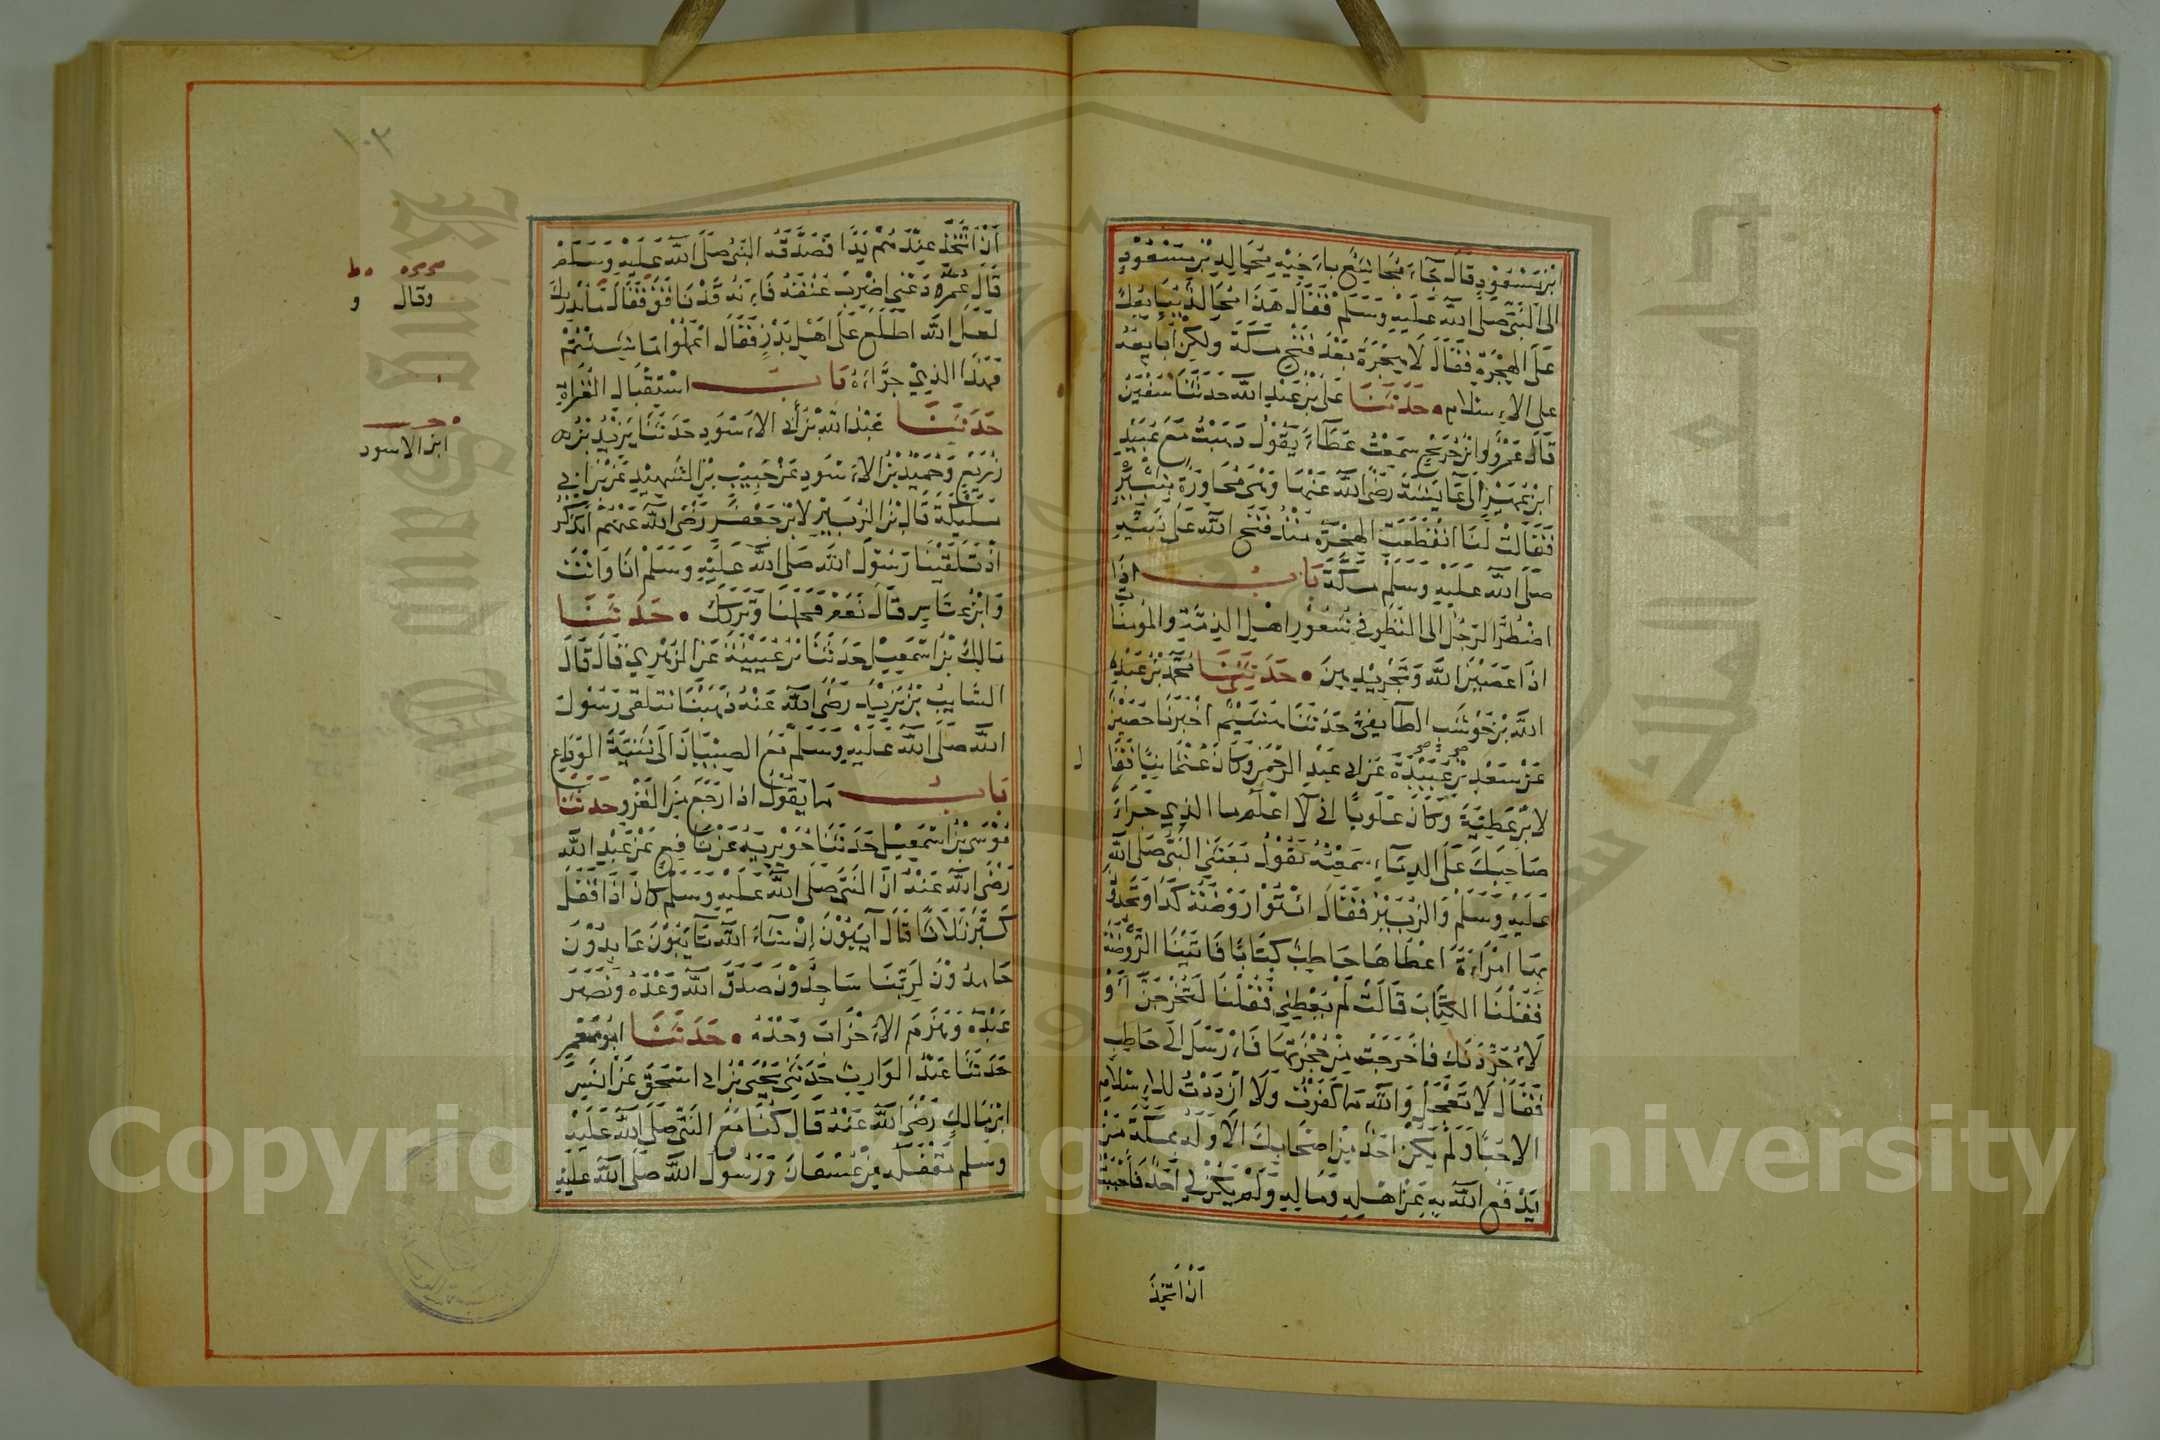 بْنِ مَسْعُودٍ قَالَ جَاءَ مُجَاشِعٌ بِأَخِيهِ مُجَالِدِ بْنِ مَسْعُودٍ
إلى النَّبِيِّ صَلَّى اللَّهُ عَلَيْهِ وَسَلَّمَ فَقَالَ هَذَا مُجَالِدٌ يُبَايِعُكَ
عَلَى الهِجْرَةِ فَقَالَ لَا هِجْرَةَ بَعْدَ فَتْحِ مَكَّةَ ولكِنْ أُبَايِعُهُ
على الإسلام حَدَّثَنَا عَلِيُّ بْنُ عَبْدِ اللَّهِ حَدَّثَنَا سُفْيَنُ
قَالَ عَمْرٌو وابْنُ جُرَيْجٍ سَمِعْتُ عَطَآءً يَقُولُ ذَهَبْتُ مَعَ عُبَيْدِ
ابْنِ عُمَيْرٍ إِلَى عَايِشَةَ رَضِيَ اللَّهُ عَنْهَا وَهْيَ مُجَاوِرَةٌ بِثَبِيْرٍ
فَقَالَتْ لَنَا انْقَطَعَتِ الهِجْرَةُ مُنْذُ فَتَحَ اللَّهُ عَلَى نَبِيِّهِ
صَلَّى اللَّهُ عَلَيْهِ وَسَلَّمَ مَكَّةَ بَابٌ إِذَا
اضْطُرَّ الرَّجُلُ إلى النَّظَرِ فِي شُعُورِ اهْلِ الذِّمَّةِ والمُؤمِنَا
اذَا عَصَيْنَ اللَّهَ وَتَجْرِيدِهِنَّ حَدَّثَنِي مُحَمَّدُ بْنُ عَبْدِ
اللَّهِ بْنِ حَوْشَبٍ الطَّايِفِيُّ حَدَّثَنَا هُشَيْمٌ اخْبَرَنَا حُصَيْنٌ
عَنْ سَعْدِ بْنِ عُبَيْدَةَ عَنْ ابي عَبْدِ الرَّحْمَنِ وَكَانَ عُثْمَانِيًّا فَقَا
ل
لِابْنِ عَطِيَّةَ وَكَانَ عَلَوِيًّا اني لَا اعْلَمُ ما الذي جَرَّأَ
صَاحِبَكَ عَلَى الدِّمَآءِ سَمِعْتُهُ يَقُولُ بَعَثَنِي النَّبِيُّ صَلَّى اللَّهُ
عَلَيْهِ وَسَلَّمَ وَالزُّبَيْرَ فَقَالَ ائْتُوا رَوْضَةَ كَذَا وَتَجِدُونَ
بِهَا امْرَأَةً اعْطَاهَا حَاطِبٌ كِتَابًا فَاتَيْنَا الرَّوْضَةَ
فَقُلْنَا الكِتَابَ قَالَتْ لَمْ يُعْطِنِي فَقُلْنَا لَتُخْرِجِنَّ أَوْ
لَأُجَرِّدَنَّكِ فاخْرَجَتْ مِنْ حُجْزَتِهَا فَأَرْسَلَ الَى حَاطِبٍ
فَقَالَ لَا تَعْجَلْ وَاللَّهِ مَا كَفَرْتُ وَلَا ازْدَدْتُ للإِسْلَامِ
الا حُبًّا وَلَمْ يَكُنْ احَدٌ مِنْ اصْحَابِكَ الَّا وَلَهُ بمَكَّةَ مَنْ
يَدْفَعُ اللَّهُ بِهِ عَنْ اهْلِهِ وَمَالِهِ وَلَمْ يَكُنْ لِي احَدٌ فَأَحْبَبْتُ
أَنْ اتَّخِذَ
١٠٢
أَنْ اتَّخِذَ عِنْدَهُمْ يَدًا فَصَدَّقَهُ النَّبِيُّ صَلَّى اللَّهُ عَلَيْهِ وَسَلَّمَ
قَالَ عُمَرُ دَعْنِي اضْرِبْ عُنُقَهُ فَإِنَّهُ قَدْ نَافَقَ فَقَالَ مَا يُدْرِيكَ
وقال و
لَعَلَّ اللَّهَ اطَّلَعَ عَلَى اهْلِ بَدْرٍ فَقَالَ اعْمَلُوا مَا شِئْتُمْ
فَهَذَا الذِي جَرَّأَهُ بَابُ اسْتِقْبَالِ الغُزَاةِ
حَدَّثَنَا عَبْدُ اللَّهِ بْنُ أَبِي الاسْوَدِ حَدَّثَنَا يَزِيدُ بْنُ
ابن الاسود
زُرَيْعٍ وَحُمَيْدُ بْنُ الاسْوَدِ عَنْ حَبِيبِ بْنِ الشَّهِيدِ عَنْ ابْنِ ابي
مُلَيْكَةَ قَالَ بْنُ الزُّبَيْرِ لِابْنِ جَعْفَرٍ رَضِيَ اللَّهُ عَنْهُمْ اتَذْكُرُ
اذْ تَلَقَّيْنَا رَسُولَ اللَّهِ صَلَّى اللَّهُ عَلَيْهِ وَسَلَّمَ انَا وَانْتَ
وَابْنُ عَبَّاسٍ قَالَ نَعَمْ فَحَمَلَنَا وَتَرَكَكَ حَدَّثَنَا
مَالِكُ بْنُ اسْمَعِيلَ حَدَّثَنَا بْنُ عُيَيْنَةَ عَنِ الزُّهْرِيِّ قَالَ قَالَ
السَّايِبُ بْنُ يَزِيدَ رَضِيَ اللَّهُ عَنْهُ ذَهَبْنَا نتلقى رَسُولَ
اللَّهِ صَلَّى اللَّهُ عَلَيْهِ وَسَلَّمَ مَعَ الصِّبْيَانِ الَى ثَنِيَّةِ الوَدَاعِ
بَابُ مَا يَقُولُ اذَا رَجَعَ مِنَ الغَزْوِ حَدَّثَنَا
مُوسَى بْنُ اسْمَعِيلَ حَدَّثَنَا جُوَيْرِيَةُ عَنْ نَافِعٍ عَنْ عَبْدِ اللَّهِ
رَضِيَ اللَّهُ عَنْهُ أَنَّ النَّبِيَّ صَلَّى اللَّهُ عَلَيْهِ وَسَلَّمَ كَانَ اذَا قَفَلَ
كَبَّرَ ثَلَاثًا قَالَ آيِبُونَ إِنْ شَاءَ اللَّهُ تَايِبُونَ عَابِدُونَ
حَامِدُونَ لِرَبِّنَا سَاجِدُونَ صَدَقَ اللَّهُ وَعْدَهُ وَنَصَرَ
عَبْدَهُ وَهَزَمَ الاحْزَابَ وَحْدَهُ حَدَّثَنَا ابُو مَعْمَرٍ
حَدَّثَنَا عَبْدُ الوَارِثِ حَدَّثَنِي يَحْيَى بْنُ ابي اسْحَقَ عَنْ انَسِ
ابْنِ مَالِكٍ رَضِيَ اللَّهُ عَنْهُ قَالَ كُنَّا مَعَ النَّبِيِّ صَلَّى اللَّهُ عَلَيْهِ
وَسَلَّمَ مَقْفَلَهُ مِنْ عُسْفَانَ وَرَسُولُ اللَّهِ صَلَّى اللَّهُ عَلَيْهِ
Copyright © King Saud University